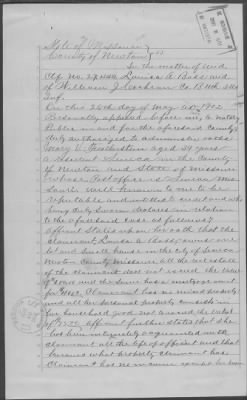 State of Missouri
County of Newton ss
In the matter of Wid
Ctf. No. Louisa A. Bass wid
of William J. Cochran Co. B
Inf.
On this 26th day of May A.D. 1902
Personally appeared before me, a Notary
Public in and for the aforesaid County
duly authorized to administer oaths
Mary E. Featherston aged 34 years
a resident Seneca in the County
of Newton and State of Missouri
whose Post office is Seneca
well known to me to be
reputable and entitled to credit and who
being duly sworn declares in relation
to the aforesaid case as follows:
Affiant States upon her oath that the
claimant Louisa A. Bass owns one
lot and small house in the city of Seneca
Newton County Missouri. All the real estate
of the claimant does not exceed the value
of and the same has a mortgage on it
for Claimant has no mixed property
and all her personal property consists in
her household goods not exceed the value
of Affiant further states that she
has been intimately acquainted with
claimant all the life of affiant and that
knows what property claimant has
Claimant has no income except her own